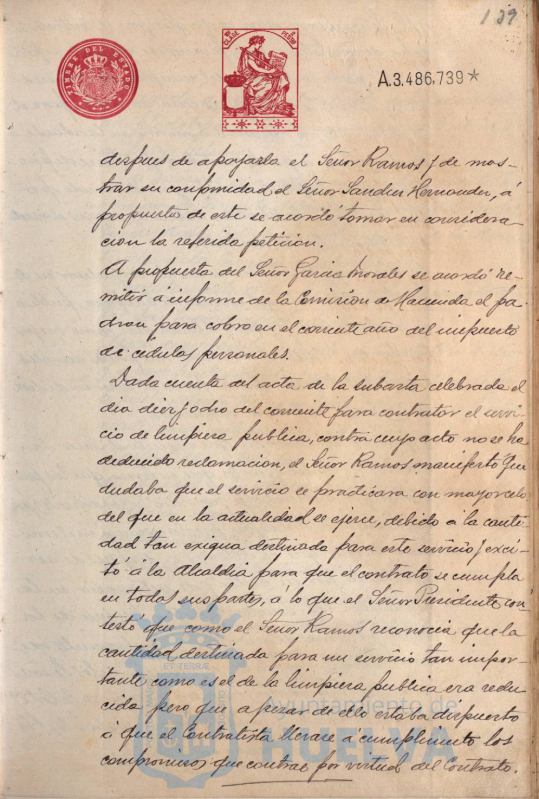 139
TIMBRE DEL ESTADO
CLASE
A.3.486.739*
despues de apoyarla el Señor Ramos y de mos-
trar su conformidad el Señor Sanchez Hernandez, á
propuesta de este se acordó tomar en considera-
cion la referida peticion.
A propuesta del Señor Garcia Morales se acordó re-
mitir á informe de la Comision de Hacienda el pa-
dron para cobro en el corriente año del impuesto
de cedulas personales.
Dada cuenta del acta de la subasta celebrada el
dia diez y ocho del corriente para contratar el servi-
cio de limpieza publica, contra cuyo acto no se ha
deducido reclamacion, el Señor Ramos manifestó que
dudaba que el servicio se practicara con mayor celo
del que en la actualidad se ejerce, debido á la canti-
dad tan exigua destinada para este servicio y exci-
tó á la Alcaldia para que el contrato se cumpla
en todas sus partes, á lo que el Señor Presidente con-
testó que como el Señor Ramos reconocia que la
cantidad destinada para un servicio tan impor-
tante como es el de la limpieza publica era redu-
cida pero que a pezar de ello estaba dispuesto
á que el Contratista llevase á cumplimiento los
compromisos que contrae por virtud del Contrato.
ET TERRÆ
Ayuntamiento de
HUELVA